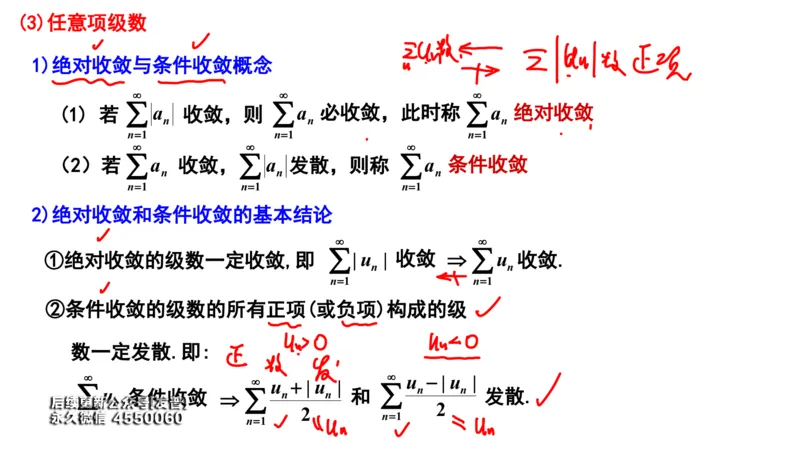 (3)任意项级数
1)绝对收敛与条件收敛概念
Σuₙ敛 ← Σ|uₙ|敛 正项
(1) 若 $\sum_{n=1}^{\infty}|a_n|$ 收敛，则 $\sum_{n=1}^{\infty}a_n$ 必收敛，此时称 $\sum_{n=1}^{\infty}a_n$ 绝对收敛
(2) 若 $\sum_{n=1}^{\infty}a_n$ 收敛，$\sum_{n=1}^{\infty}|a_n|$ 发散，则称 $\sum_{n=1}^{\infty}a_n$ 条件收敛
2)绝对收敛和条件收敛的基本结论
①绝对收敛的级数一定收敛,即 $\sum_{n=1}^{\infty}|u_n|$ 收敛 ⇒ $\sum_{n=1}^{\infty}u_n$ 收敛.
②条件收敛的级数的所有正项(或负项)构成的级
数一定发散.即: 正 uₙ>0 uₙ<0
敛 发
$\sum^{\infty}u_n$ 条件收敛 ⇒ $\sum_{n=1}^{\infty}\frac{u_n+|u_n|}{2}$ 和 $\sum_{n=1}^{\infty}\frac{u_n-|u_n|}{2}$ 发散.
uₙ uₙ
永久微信 4550060